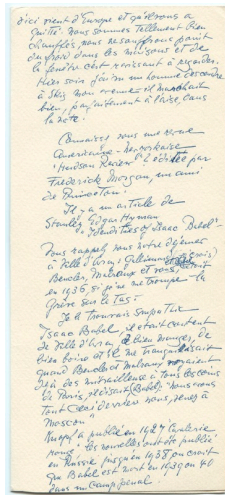 d'ici vient d'Europe et
quitté. Nous sommes tellement bien
chauffés, nous ne souffrons point
du froid dans les maisons et de
la fenêtre c'est ravissant à regarder.
Hier soir j'ai vu un homme descendre
à skis mon avenue il marchait
bien, parfaitement à l'aise, dans
la nuit.
Connaissez vous une revue
Americaine
"Hudson Review" éditée par
Frederick Morgan, un ami
de Princeton.
Il y a un article de
Stanley Edgar Hyman
"Identities of Isaac Babel"
Vous rappelez vous notre déjeuner
à Ville d'Avray
Benoles, Malraux et vous,
en 1936, si je ne me trompe - la
grève sur le tas -
Je le trouvais sympathique
Isaac Babel, il était content
de Ville d'Avray, de bien manger, de
bien boire et
quand et Malraux
déjà des mitrailleuses à tous les coins
de Paris, il disait (Babel) "nous avons
tout ceci derrière nous, venez à
Moscou"
a publié en 1927 Cavalerie
rouge, les nouvelles ont été publié
en Russie jusqu'en 1938 on croit
que Babel est mort en 1939 ou 40
dans un camp penal.